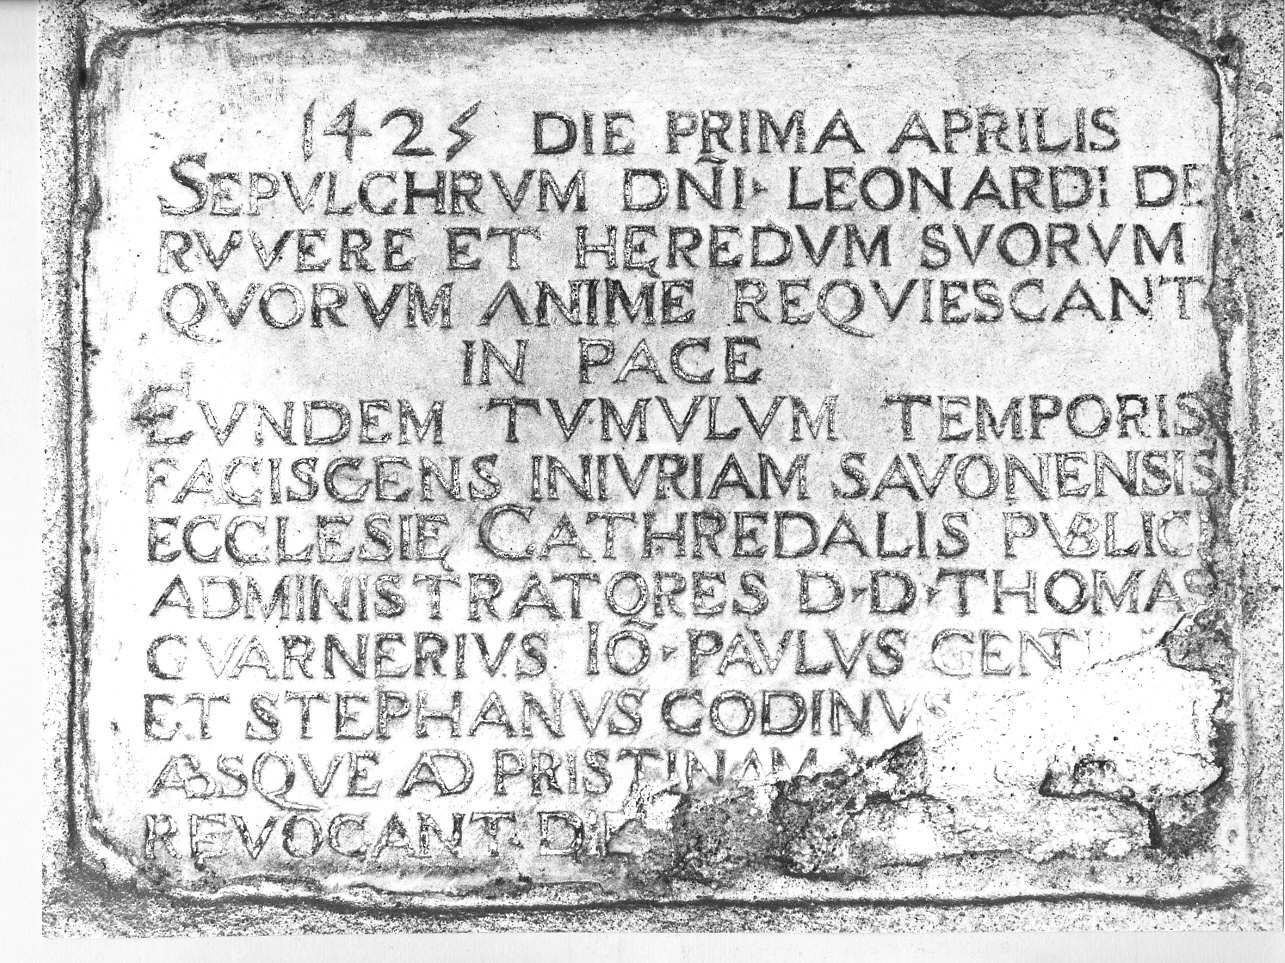 1425 DIE PRIMA APRILIS
SEPVLCHRVM DÑI· LEONARDI DE
RVVERE ET HEREDVM SVORVM
QVORVM ANIMĘ REQVIESCANT
IN PACE
EVNDEM TVMVLVM TEMPORIS
FACISCENS INIVRIAM SAVONENSIS
ECCLESIĘ CATHREDALIS PVBLICI
ADMINISTRATORES D·D·THOMAS
GVARNERIVS IO·PAVLVS
ET STEPHANVS GODINVS
ABSQVE AD PRISTINAM
REVOCANT